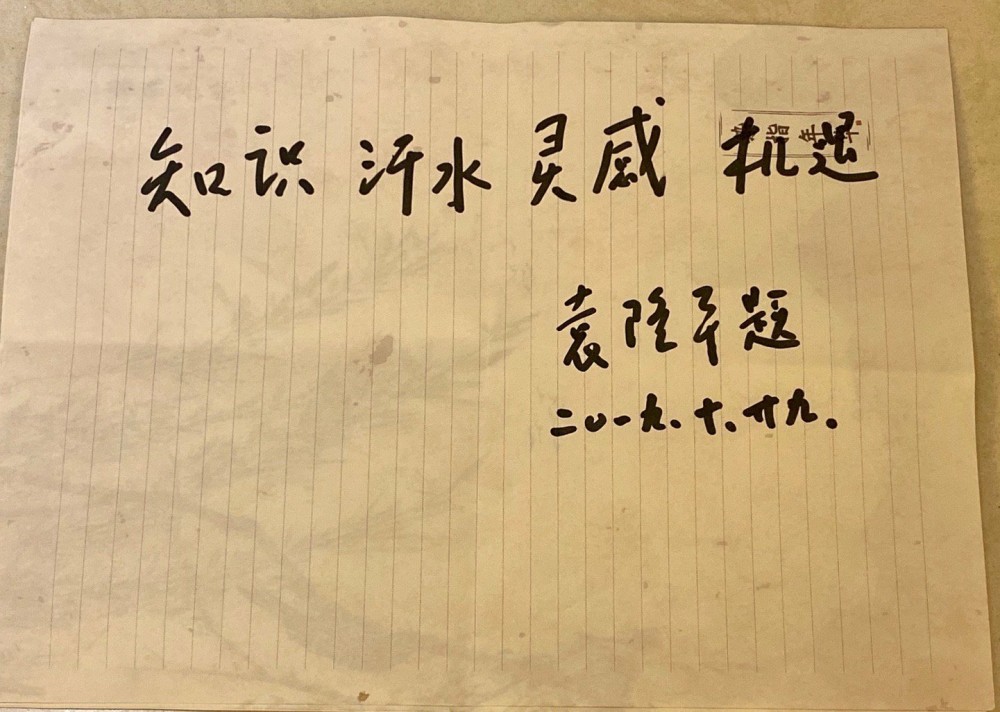 知识 汗水 灵感 机遇
袁隆平题
二〇一九.十.廿九.